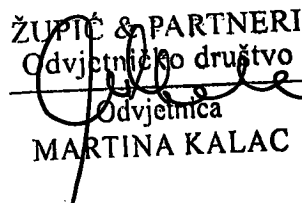 ŽUPIĆ & PARTNERI
Odvjetničko društvo
Odvjetnica
MARTINA KALAC